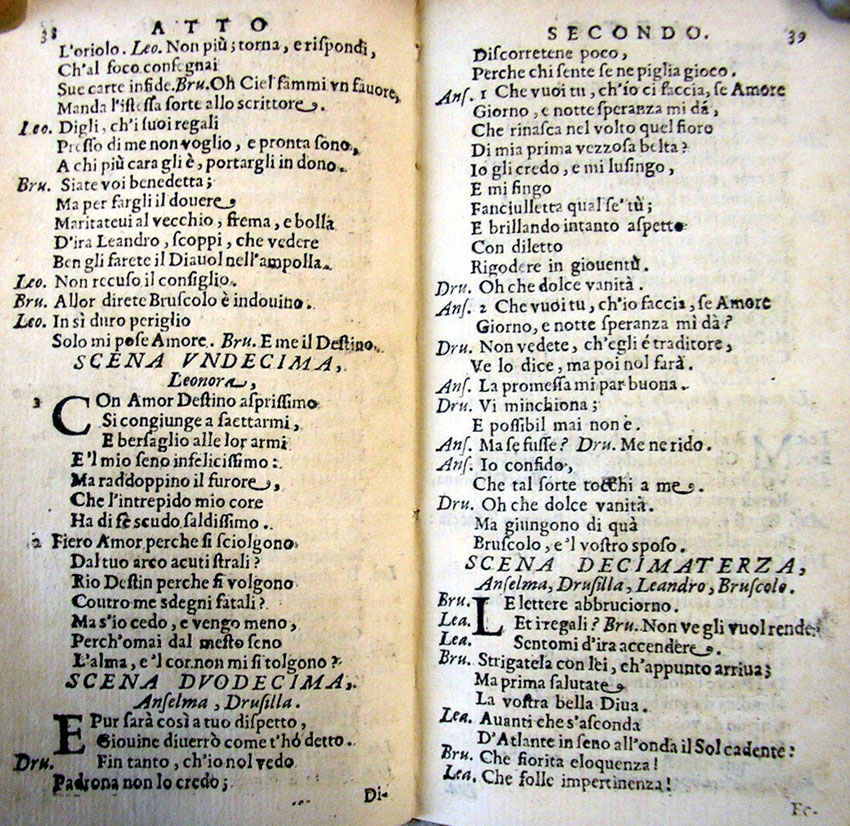 38 ATTO
L'oriolo. Leo. Non più; torna, e rispondi,
Ch'al foco consegnai
Sue carte infide. Bru. Oh Ciel fammi vn fauore,
Manda l'istessa sorte allo scrittore.
Leo. Digli, ch'i suoi regali
Presso di me non voglio, e pronta sono,
A chi più cara gli è, portargli in dono.
Bru. Siate voi benedetta;
Ma per fargli il douere
Maritateui al vecchio, frema, e bolla
D'ira Leandro, scoppi, che vedere
Ben gli farete il Diauol nell'ampolla.
Leo. Non recuso il consiglio.
Bru. Allor direte Bruscolo è indouino.
Leo. In sì duro periglio
Solo mi pose Amore. Bru. E me il Destino.
SCENA VNDECIMA,
Leonora,
1 COn Amor Destino asprissimo
Si congiunge a saettarmi,
E bersaglio alle lor armi
E'l mio seno infelicissimo:
Ma raddoppino il furore,
Che l'intrepido mio core
Ha di sè scudo saldissimo.
2 Fiero Amor perche si sciolgono
Dal tuo arco acuti strali?
Rio Destin perche si volgono
Coutro me sdegni fatali?
Ma s'io cedo, e vengo meno,
Perch'omai dal mesto seno
L'alma, e'l cor non mi si tolgono?
SCENA DVODECIMA,
Anselma, Drusilla.
E Pur sarà così a tuo dispetto,
Giouine diuerrò come t'hò detto.
Dru. Fin tanto, ch'io nol vedo
Padrona non lo credo;
Di-
SECONDO. 39
Discorretene poco,
Perche chi sente se ne piglia gioco.
Ans. 1 Che vuoi tu, ch'io ci faccia, se Amore
Giorno, e notte speranza mi dà,
Che rinasca nel volto quel fioro
Di mia prima vezzosa belta?
Io gli credo, e mi lusingo,
E mi fingo
Fanciulletta qual se' tù;
E brillando intanto aspetto
Con diletto
Rigodere in giouentù.
Dru. Oh che dolce vanità.
Ans. 2 Che vuoi tu, ch'io faccia, se Amore
Giorno, e notte speranza mi dà?
Dru. Non vedete, ch'egli é traditore,
Ve lo dice, ma poi nol farà.
Ans. La promessa mi par buona.
Dru. Vi minchiona;
E possibil mai non è.
Ans. Ma se fusse? Dru. Me ne rido.
Ans. Io confido,
Che tal sorte tocchi a me.
Dru. Oh che dolce vanità.
Ma giungono di quà
Bruscolo, e'l vostro sposo.
SCENA DECIMATERZA,
Anselma, Drusilla, Leandro, Bruscolo.
Bru. LE lettere abbruciorno.
Lea. Et i regali? Bru. Non ve gli vuol rende
Lea. Sentomi d'ira accendere.
Bru. Strigatela con lei, ch'appunto arriua;
Ma prima salutate
La vostra bella Diua.
Lea. Auanti che s'asconda
D'Atlante in seno all'onda il Sol cadente:
Bru. Che fiorita eloquenza!
Lea. Che folle impertinenza!
Fc-